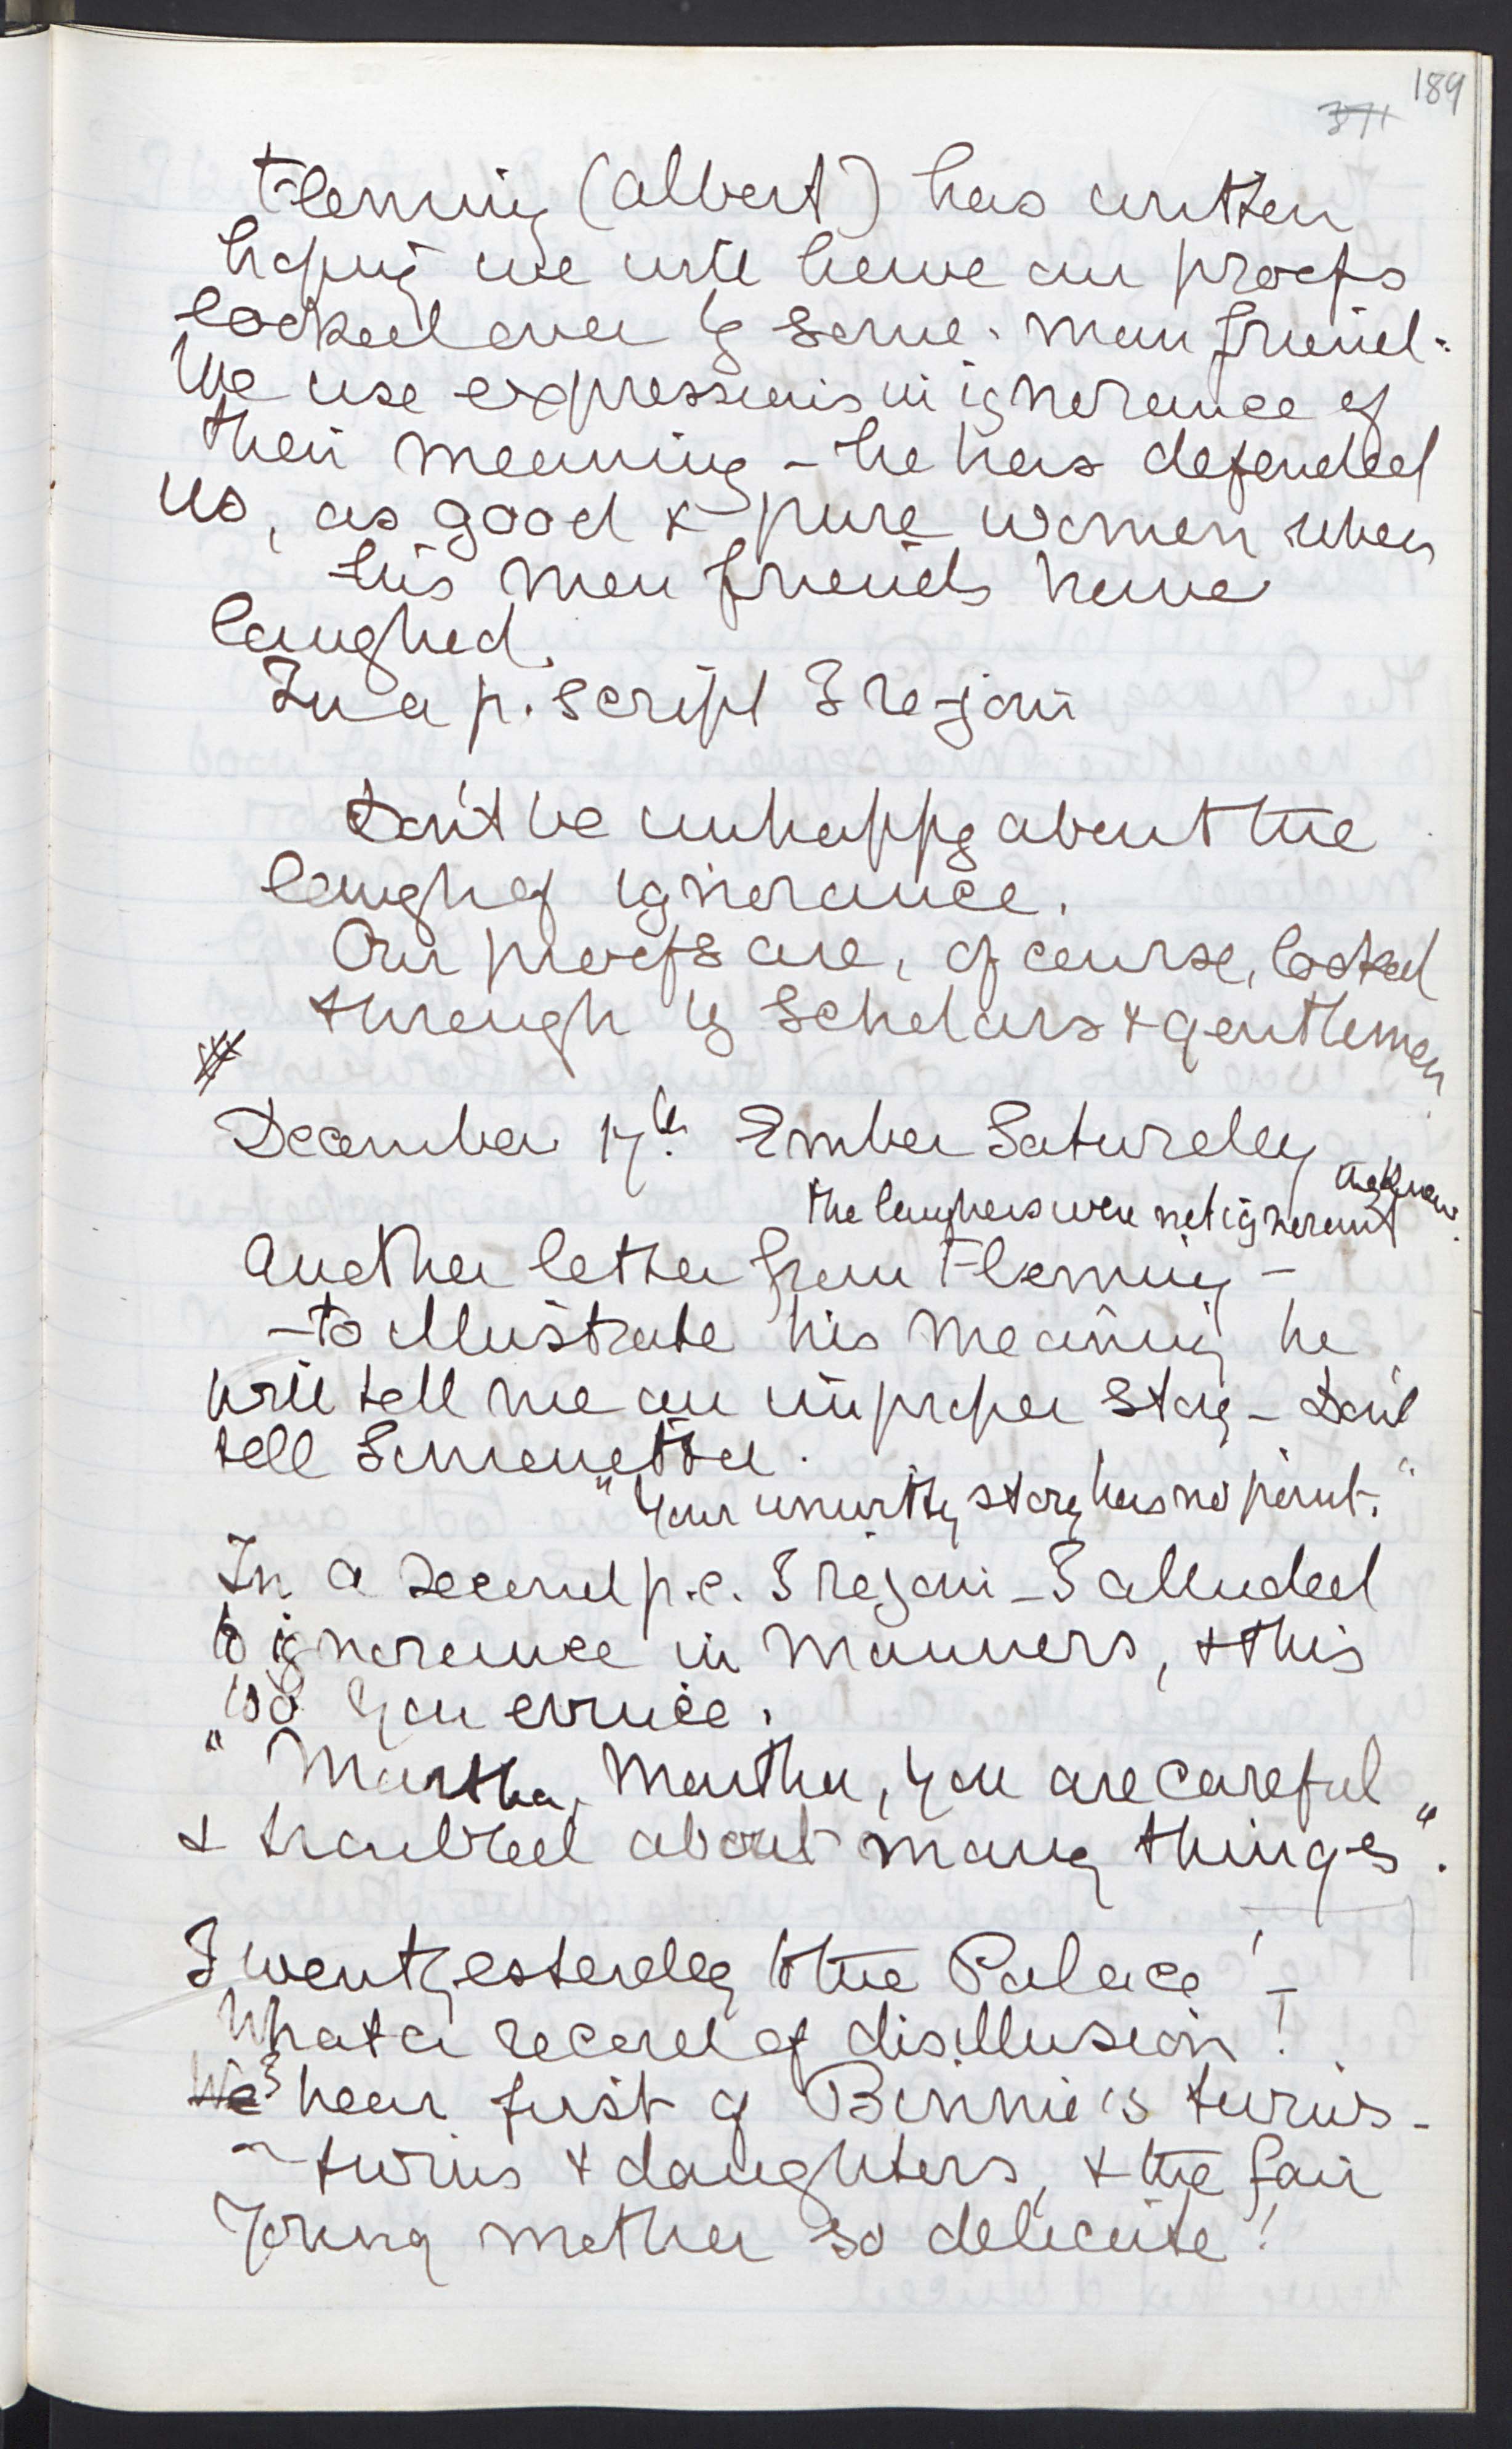 189
371
Fleming (Albert) has written
hoping we will have our proofs
looked over by some man friend.
We use expressions in ignorance of
their meaning – he has defended
us, as good & pure women when
his men friends have
laughed.
In a p. script I re-join
Don't be unhappy about the
laugh of ignorance.
Our proofs are, of course, looked
through by scholars & gentlemen
December 17th Ember Saturday
the laughers were not ignorant
they knew.
Another letter from Fleming –
– to illustrate his meaning he
will tell me an improper story – Don't
tell
"Your unworthy story has no point."
In a second p.c. I rejoin – I alluded
to ignorance in manners, & this
you evince.
"Martha, Martha, you are careful
& troubled about many things".
I went yesterday to the Palace! –
What a record of disillusion!
We I hear first of Binnie's twins –
– twins & daughters, & the fair
young mother so delicate!